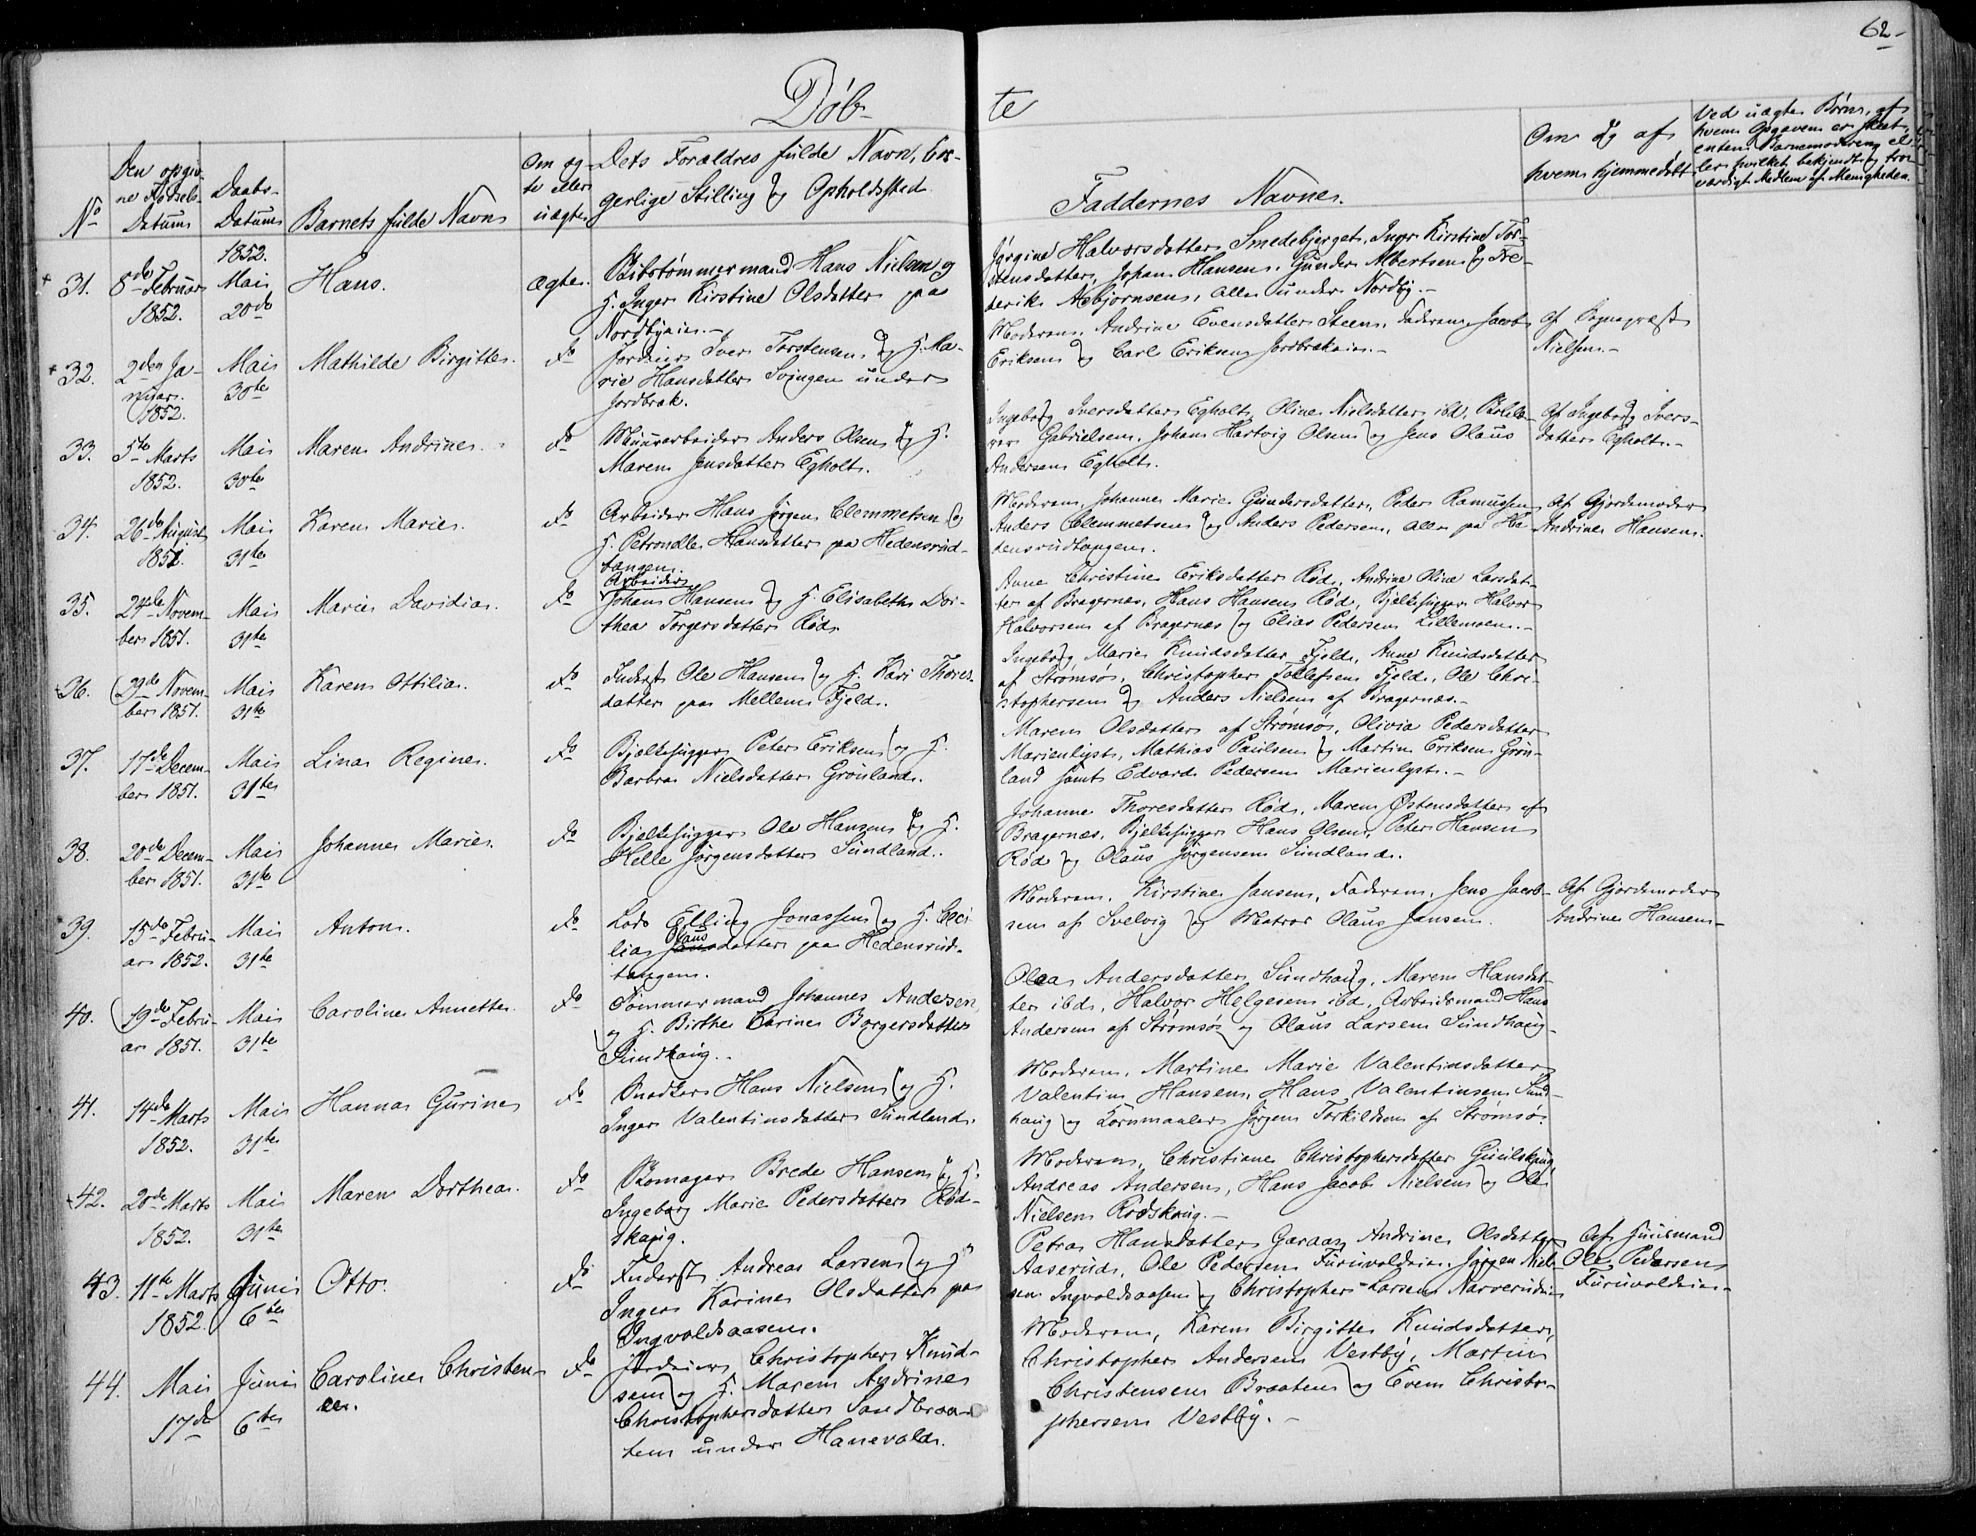 62-
Døb-
te
No
Den opgiv-
ne Fødsels-
Datum
Daabs-
Datum
Barnets fulde Navn
Om æg-
te eller
uægte
Dets Forældres fulde Navn, bor-
gerlige Stilling og Opholdssted.
Faddernes Navne.
Om og af
hvem hjemmedøbt
Ved uægte Børn, af
hvem Opgaven er skeet,
enten Barnemoderen el-
ler hvilket bekjendt og tro-
værdigt Medlem af Menigheden.
31.
8de Februar
1852.
1852.
Mai
20de
Hans.
Ægte.
Hans Nielsen og
H. Inger Kirstine Olsdatter paa
Nordbyeie.-
Jørgine Halvorsdatter Smedebjerget, Inger Kirstine Tor-
stensdatter, Johan Hansen, Gunder Albertsen og Fre-
derik Asbjørnsen, alle under Nordby.-
32.
2den Ja-
nuar.
1852.
Mai
30te
Mathilde Birgitte.
do
Iver Torstensen og H. Ma-
rie Hansdatter Svingen under
Jordbræk.
Moderen, Andrine Evensdatter Steen, Faderen, Jacob
Eriksen og Carl Eriksen Jordbrækeie.-
Af Sognepræst
Nielsen.-
33.
5te Marts
1852.
Mai
30te
Maren Andrine.
do
Muurarbeider Anders Olsen og H.
Maren Jensdatter Egholt.
Ingeborg Iversdatter Egholt, Oline Nielsdatter ibd,
Gabrielsen, Johan Hartvig Olsen og Jens Olaus
Andersen Egholt.
Af Ingeborg Ivers-
datter Egholt.-
34.
26de August
1851.
Mai
31te
Karen Marie.
do
Arbeider Hans Jørgen Clemmetsen og
H. Petronelle Hansdatter paa Hedensrud-
tangen.
Moderen, Johanne Marie Gundersdatter, Peter Rasmussen
Anders Clemmetsen og Anders Pedersen, alle paa He-
densrudtangen.
Af Gjordemoder
Andrine Hansen.
35.
24de Novem-
ber 1851.
Mai
31te
Marie Davidia.
do
Arbeider
Johan Hansen og H. Elisabeth Dor-
thea Torgersdatter Rød.
Anne Christine Eriksdatter Rød, Andrine Oline Larsdat-
ter af Bragernæs, Hans Hansen Rød, Bjelkehugger Halvor
Halvorsen af Bragernæs og Elias Pedersen Lillemoen.-
36.
29de Novem-
ber 1851.
Mai
31te
Karen Ottilia.
do
Inderst Ole Hansen og H. Kari Thores-
datter paa Mellem Fjeld.
Ingeborg Marie Knudsdatter Fjeld, Anne Knudsdatter
af Strømsø, Christopher Tollefsen Fjeld, Ole Chri-
stophersen og Anders Nielsen af Bragernæs.-
37.
17de Decem-
ber 1851.
Mai
31te
Lina Regine.
do
Bjelkehugger Peter Eriksen og H.
Barbra Nielsdatter Grønland.
Maren Olsdatter af Strømsø, Olivia Pedersdatter
Marienlyst, Mathias Paulsen og Martin Eriksen Grøn-
land samt Edvard Pedersen Marienlyst.-
38.
20de Decem-
ber 1851.
Mai
31te
Johanne Marie.
do
Bjelkehugger Ole Hansen og H.
Helle Jørgensdatter Sundland.
Johanne Thoresdatter Rød, Maren Østensdatter af
Bragernæs, Bjelkehugger Hans Olsen, Peter Hansen
Rød og Olaus Jørgensen Sundland.
39.
15de Febru-
ar 1852.
Mai
31te
Anton.
do
Lods Elling Jonassen og H. Ceci-
lia Olausdatter paa Hedensrud-
tangen.
Moderen, Kirstine Jansen, Faderen, Jens Jacob-
sen af Svelvig og Matros Olaus Jansen.
Af Gjordemoder
Andrine Hansen-
40.
19de Febru-
ar 1851.
Mai
31te
Caroline Annette.
do
Tømmermand Johannes Andersen
og H. Birthe Karine Borgersdatter
Sundhaug.-
Olea Andersdatter Sundhaug, Maren Hansdat-
ter ibd, Halvor Helgesen ibd, Arbeidsmand Hans
Andersen af Strømsø og Olaus Larsen Sundhaug-
41.
14de Marts
1852.
Mai
31te
Hanna Gurine
do
Snedker Hans Nielsen og H.
Inger Valentinsdatter Sundland.
Moderen, Martine Marie Valentinsdatter,
Valentin Hansen, Hans Valentinsen Sund-
haug og Kornmaaler Jørgen Torkildsen af Strømsø.
42.
20de Marts
1852.
Mai
31te
Maren Dorthea.
do
Skomager Brede Hansen og H.
Ingeborg Marie Pedersdatter Rød-
skaug.
Moderen, Christiane Christophersdatter Guulskaug,
Andreas Andersen, Hans Jacob Nielsen og Ole
Nielsen Rødskaug.-
43.
11te Marts
1852.
Juni
6te
Otto.
do
Inderst Andreas Larsen og H
Inger Karine Olsdatter paa
Ingvoldsaasen.
Petra Hansdatter Garaas, Andrine Olsdatter
Aaserud, Ole Pedersen Furuvoldeie, Jørgen Niel-
sen Ingvoldsaasen og Christopher Larsen Narverudeie
Af Huusmand
Ole Pedersen
Furuvoldeie-
44.
Mai
17de
Juni
6te
Caroline Christen-
ce.
do
Christopher Knud-
sen og H. Maren Andrine
Christophersdatter Sandbraa-
ten under Hanevold.
Moderen, Karen Birgitte Knudsdatter,
Christopher Andersen Vestby, Martin
Christensen Braaten og Even Christo-
phersen Vestby.-